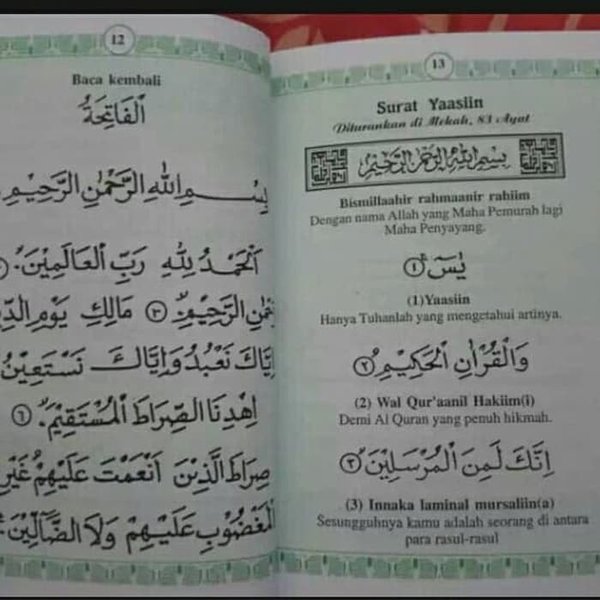 12
Baca kembali
اَلْفَاتِحَةُ
بِسْمِ اللهِ الرَّحْمٰنِ الرَّحِيْمِ
اَلْحَمْدُ لِلّٰهِ رَبِّ الْعَالَمِيْنَ
الرَّحِيْمِ ﴿٣﴾ مَالِكِ يَوْمِ
اِيَّاكَ نَعْبُدُ وَاِيَّاكَ نَسْتَعِيْنُ
اِهْدِنَا الصِّرَاطَ الْمُسْتَقِيْمَ ﴿٦﴾
صِرَاطَ الَّذِيْنَ اَنْعَمْتَ عَلَيْهِمْ غَيْرِ
الْمَغْضُوْبِ عَلَيْهِمْ وَلَا الضَّالِّيْنَ
13
Surat Yaasiin
Diturunkan di Mekah, 83 Ayat
بِسْمِ اللهِ الرَّحْمٰنِ الرَّحِيْمِ
Bismillaahir rahmaanir rahiim
Dengan nama Allah yang Maha Pemurah lagi
Maha Penyayang.
يٰسٓ ﴿١﴾
(1)Yaasiin
Hanya Tuhanlah yang mengetahui artinya.
وَالْقُرْاٰنِ الْحَكِيْمِ ﴿٢﴾
(2) Wal Qur'aanil Hakiim(i)
Demi Al Quran yang penuh hikmah.
اِنَّكَ لَمِنَ الْمُرْسَلِيْنَ ﴿٣﴾
(3) Innaka laminal mursaliin(a)
Sesungguhnya kamu adalah seorang di antara
para rasul-rasul